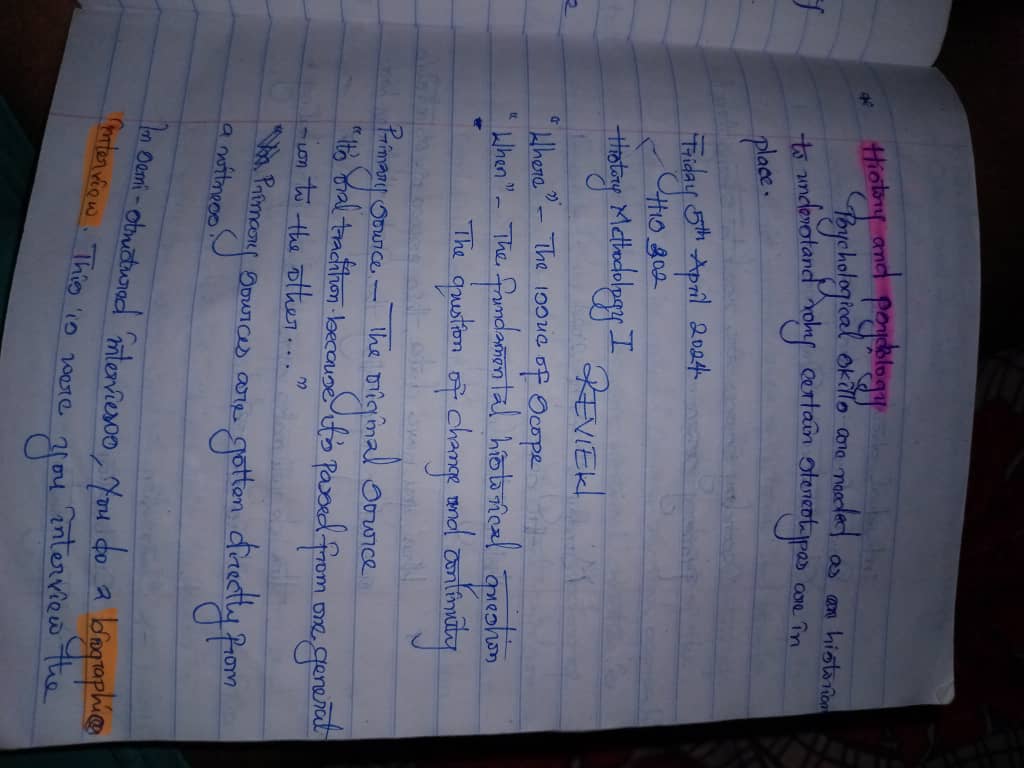 * History and psychology
Psychological skills are needed as an historian
to understand why certain stereotypes are in
place.
Friday 5th April 2024
HIS 302
History Methodology I
REVIEW
"Where" - The issue of Scope
"When" - The fundamental historical question
The question of change and continuity
Primary source - The original source
"It's oral tradition because it's passed from one generat
-ion to the other..."
Primary sources are gotten directly from
a witness.
In semi-structured interviews, you do a biographical
interview. This is were you interview the